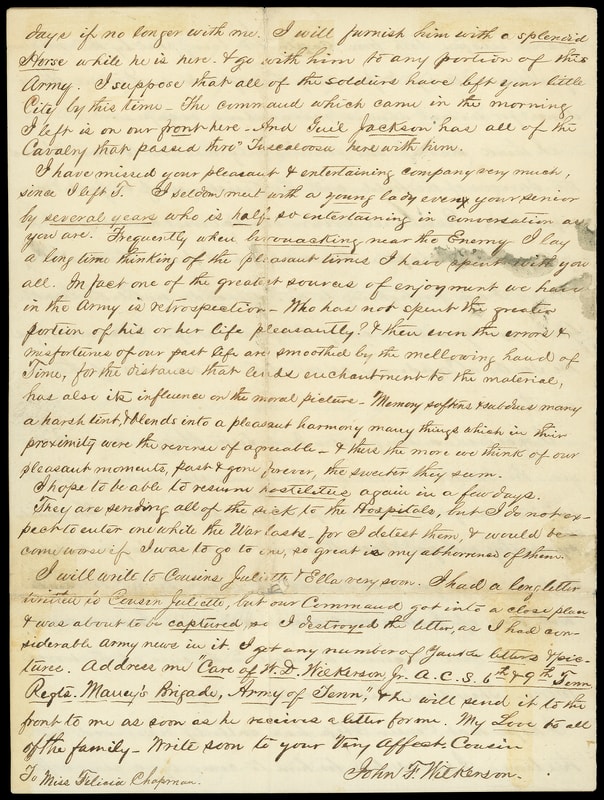 days if no longer with me. I will furnish him with a splendid
Horse while he is here. & go with him to any portion of this
Army. I suppose that all of the soldiers have left your little
City by this time – The command which came in the morning
I left is on our front here – And Gen'l Jackson has all of the
Cavalry that passed thro" Tuscaloosa here with him.
I have missed your pleasant & entertaining company very much,
since I left T. I seldom meet with a young lady even your senior
by several years who is half so entertaining in conversation as
you are. Frequently when bivouacking near the Enemy I lay
a long time thinking of the pleasant times I have spent with you
all. In fact one of the greatest sources of enjoyment we have
in the Army is retrospection – Who has not spent the greater
portion of his or her life pleasantly? & then even the errors &
misfortunes of our past life are smoothed by the mellowing hand of
Time, for the distance that lends enchantment to the material,
has also its influence on the moral picture – Memory softens & subdues many
a harsh tint, & blends into a pleasant harmony many things which in their
proximity were the reverse of agreeable – & thus the more we think of our
pleasant moments, past & gone forever, the sweeter they seem.
I hope to be able to resume hostilities again in a few days.
They are sending all of the sick to the Hospitals, but I do not ex-
pect to enter one while the War lasts – for I detest them, & would be-
come worse if I was to go to one, so great is my abhorrence of them.
I will write to Cousins Juliette & Ella very soon. I had a long letter
written to Cousin Juliette, but our Command got into a close place
& was about to be captured, so I destroyed the letter, as I had con-
siderable Army news in it. I get any number of Yankee letters & pic-
tures. Address me "Care of W. D. Wilkerson Jr. A. C. S. 6th & 9th Tenn
Regts. Maney's Brigade, Army of Tenn", & he will send it to the
front to me as soon as he receives a letter for me. My Love to all
of the family – Write soon to your Very Affect. Cousin
John F. Wilkerson.
To Miss Felicia Chapman.